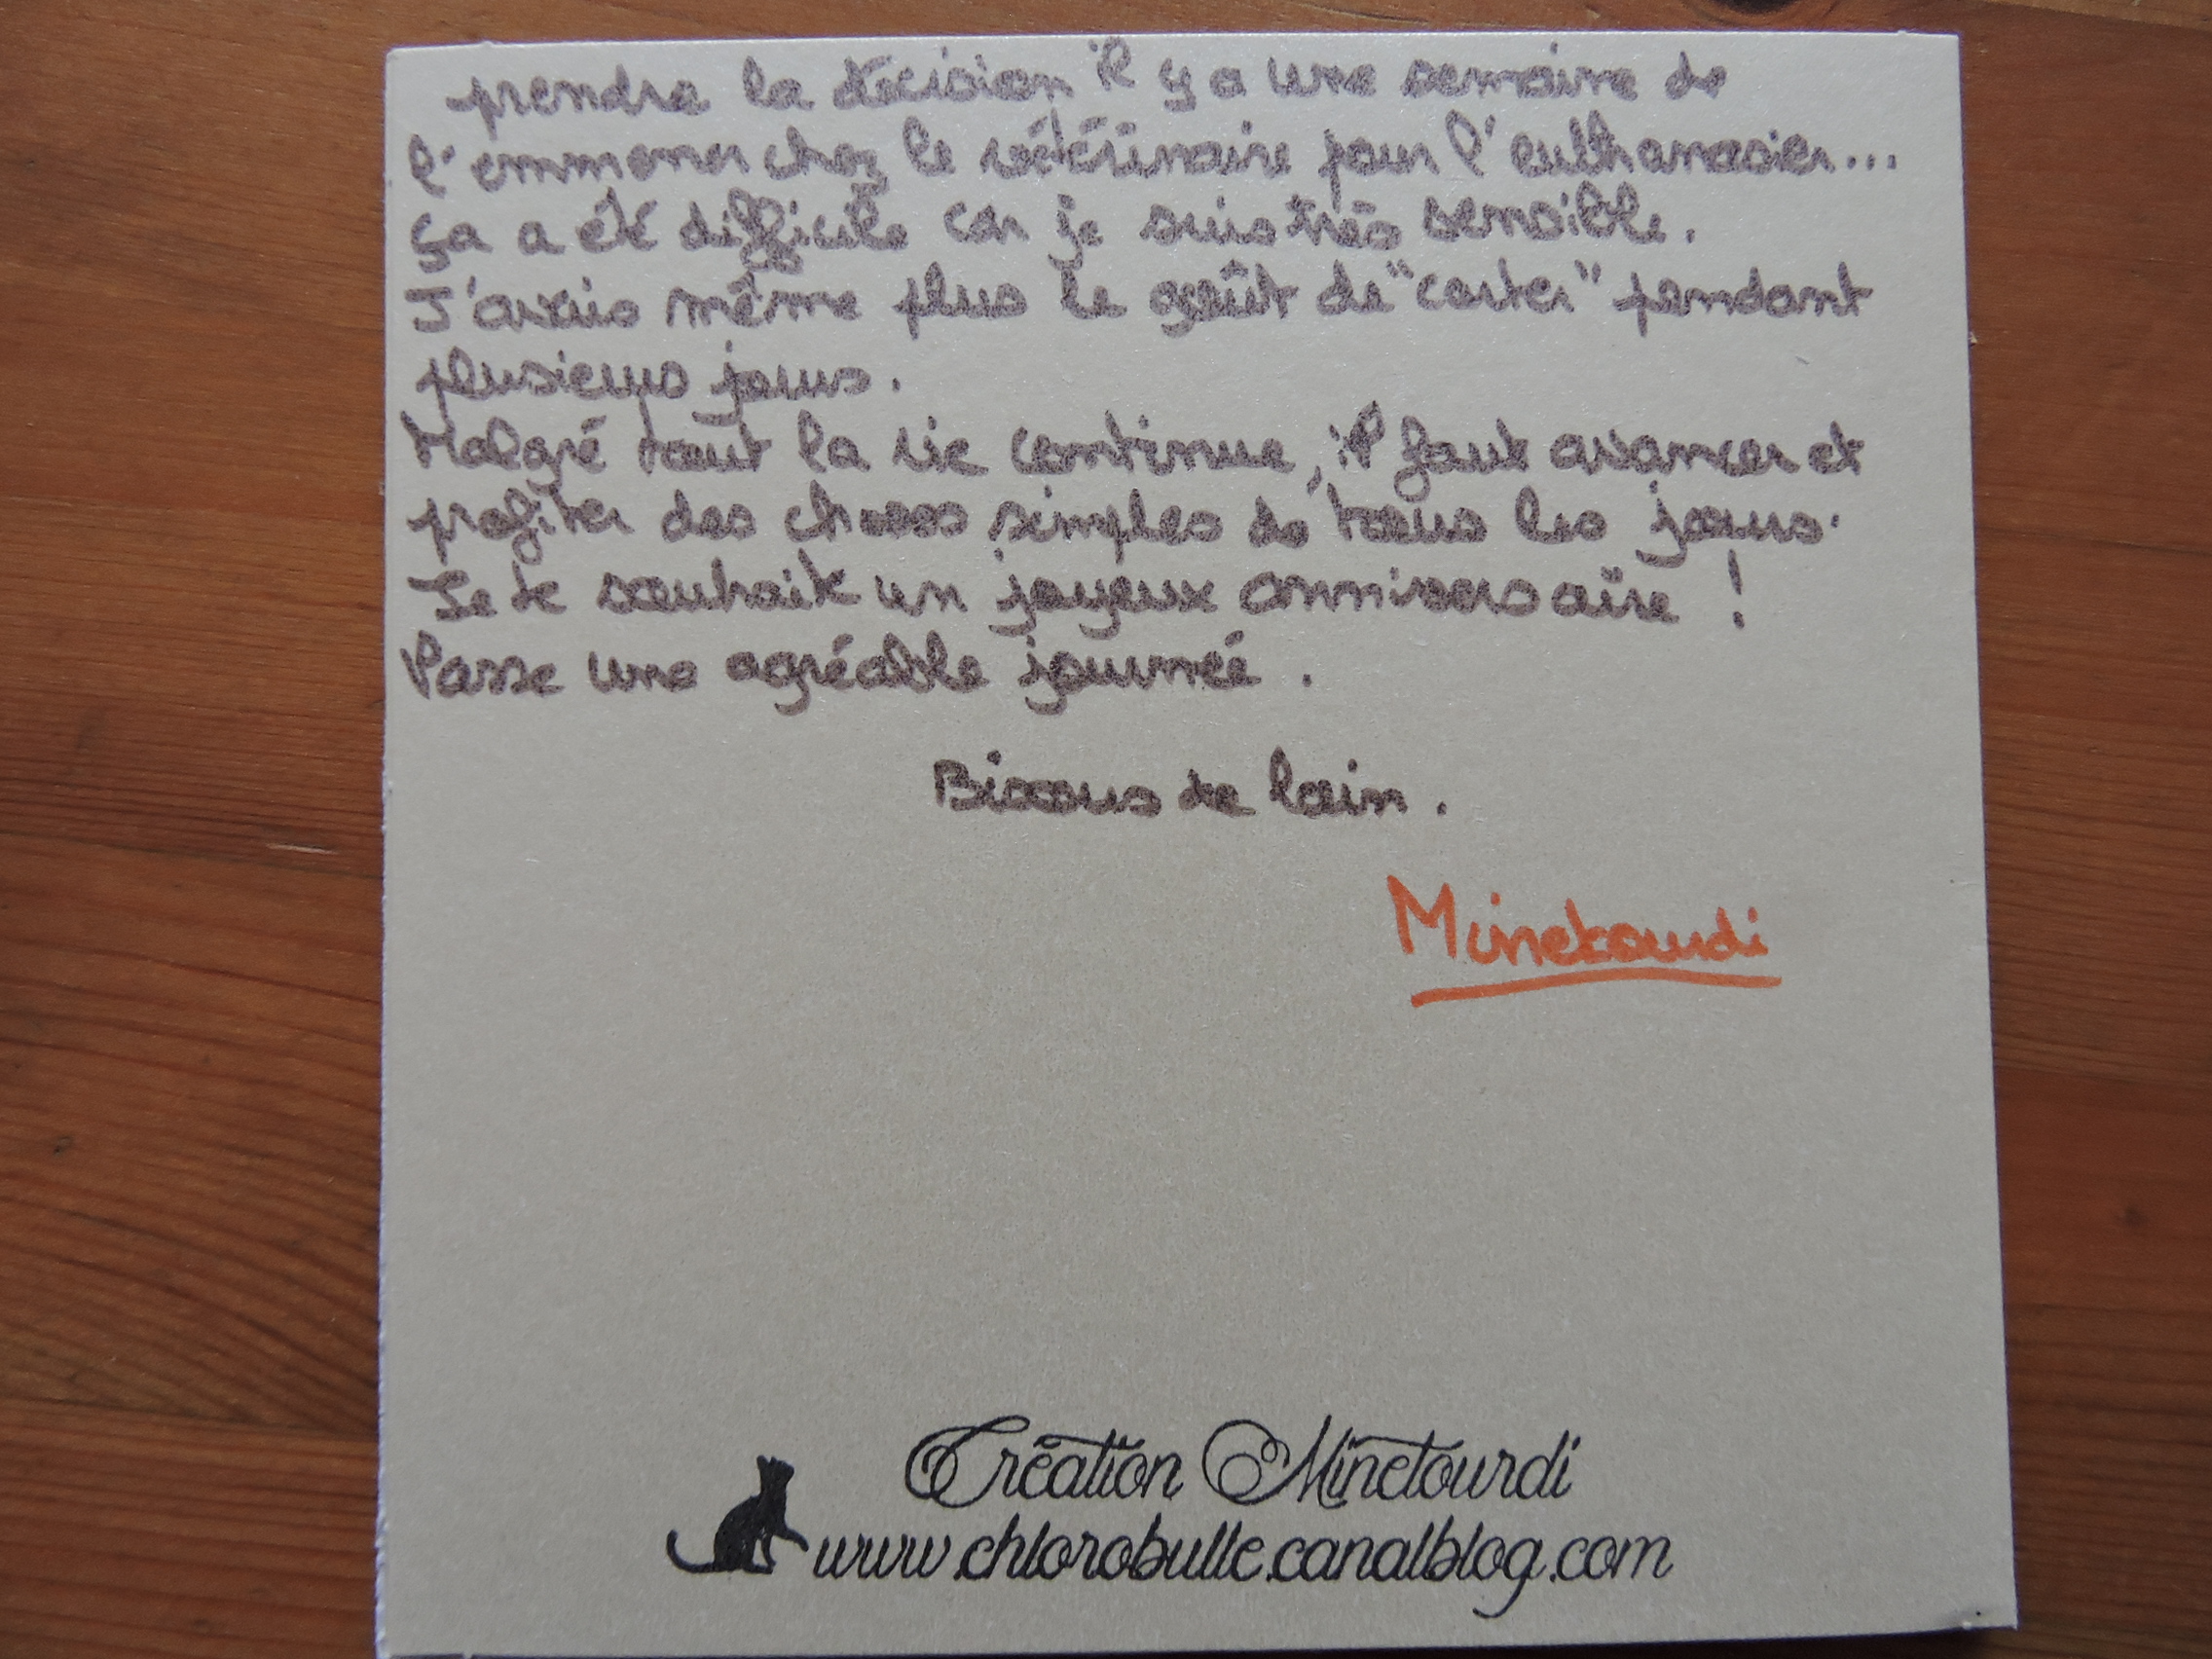 prendre la décision il y a une semaine de
l'emmener chez le vétérinaire pour l'eulthanasier...
ça a été difficile car je suis très sensible.
J'avais même plus le goût de "carter" pendant
plusieurs jours.
Malgré tout la vie continue, il faut avancer et
profiter des choses simples de tous les jours.
Je te souhaite un joyeux anniversaire !
Passe une agréable journée.
Bisous de loin.
Minetourdi
Création Minetourdi
www.chlorobulle.canalblog.com